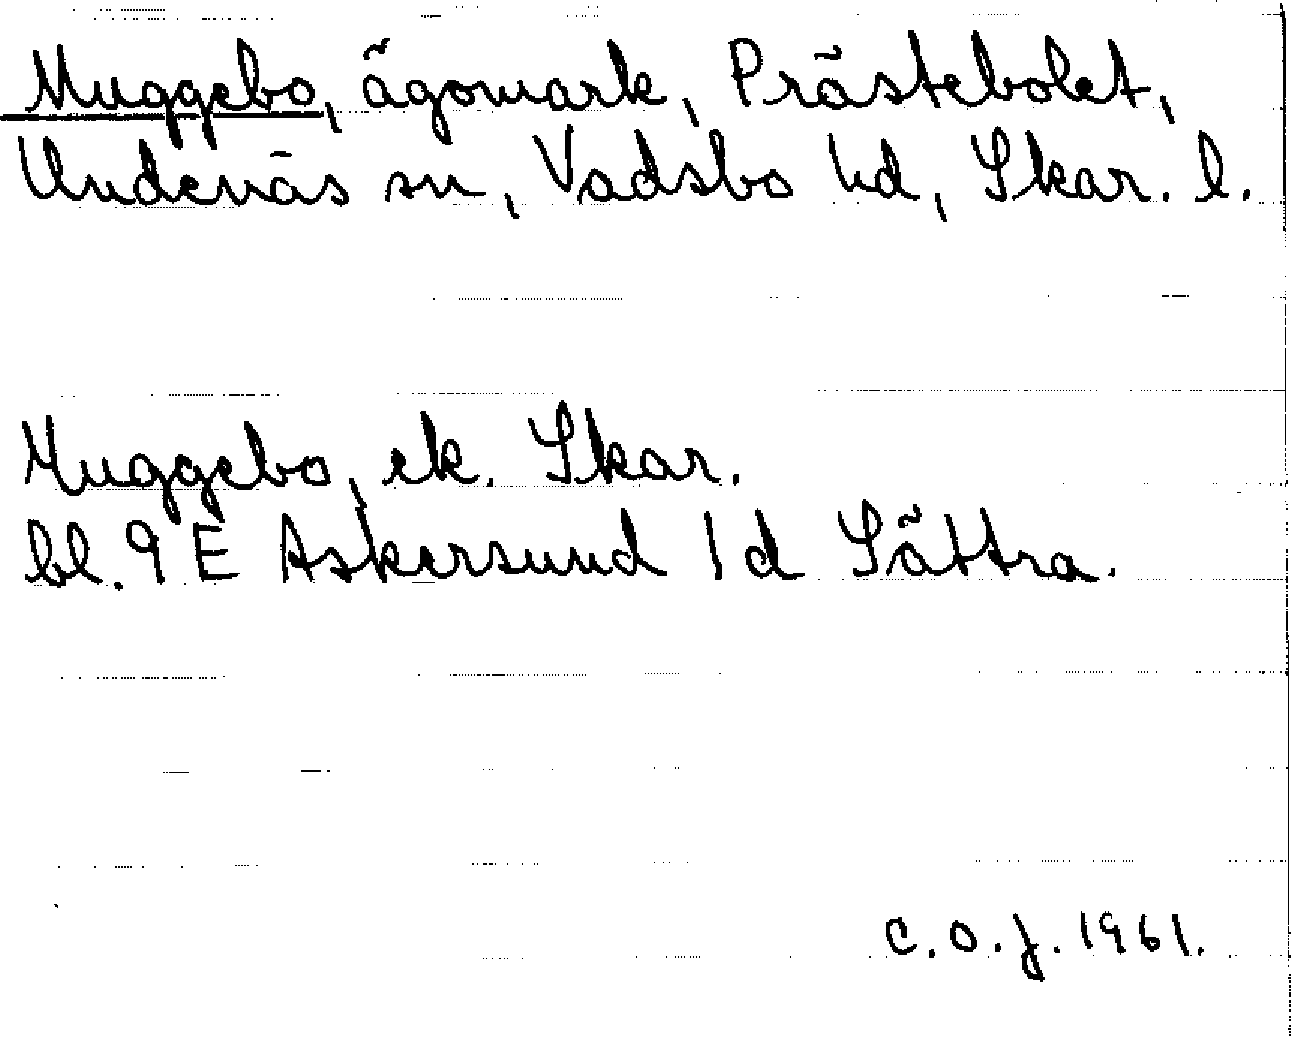 Muggebo, ägomark, Prästebolet,
Undenäs sn, Vadsbo hd, Skar. l.
Muggebo, ek. Skar.
bl. 9 E Askersund 1 d Sättra.
C.O.J. 1961.